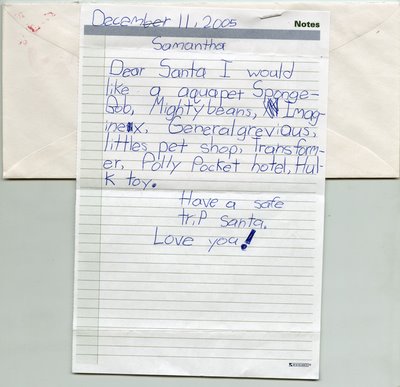 December 11, 2005
Notes
Samantha
Dear Santa I would
like a aquapet Sponge-
Bob, Mighty beans, Imag-
inex, General grevious,
littles pet shop, Transform-
er, Polly Pocket hotel, Hul-
k toy.
Have a safe
trip santa.
Love you!